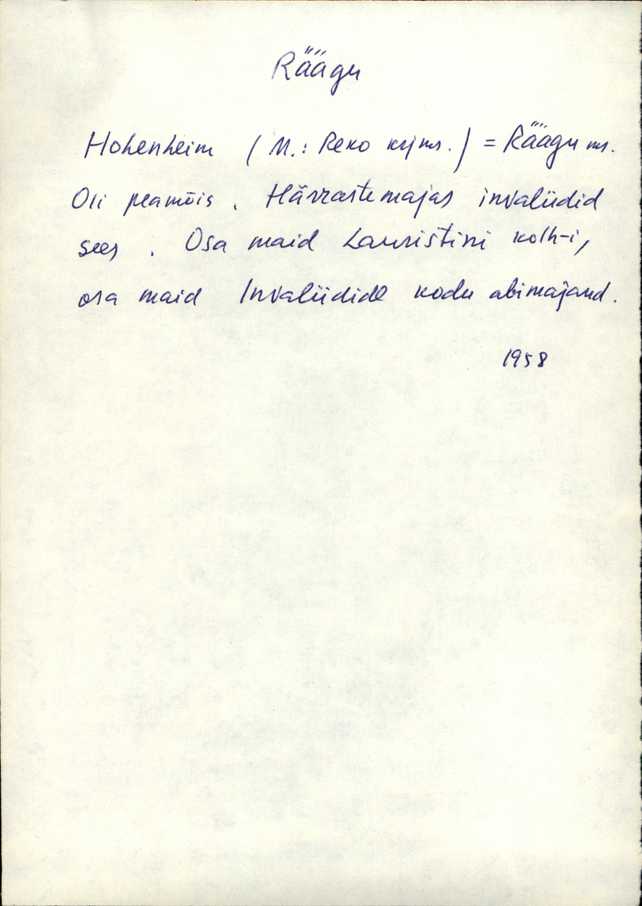 Räägu
Hohenheim (M.: Reko krjms.) = Räägu ms.
Oli peamõis. Härrastemajas invaliidid
sees. Osa maid Lauristini kolh-i,
osa maid Invaliidide kodu abimajand.
1958